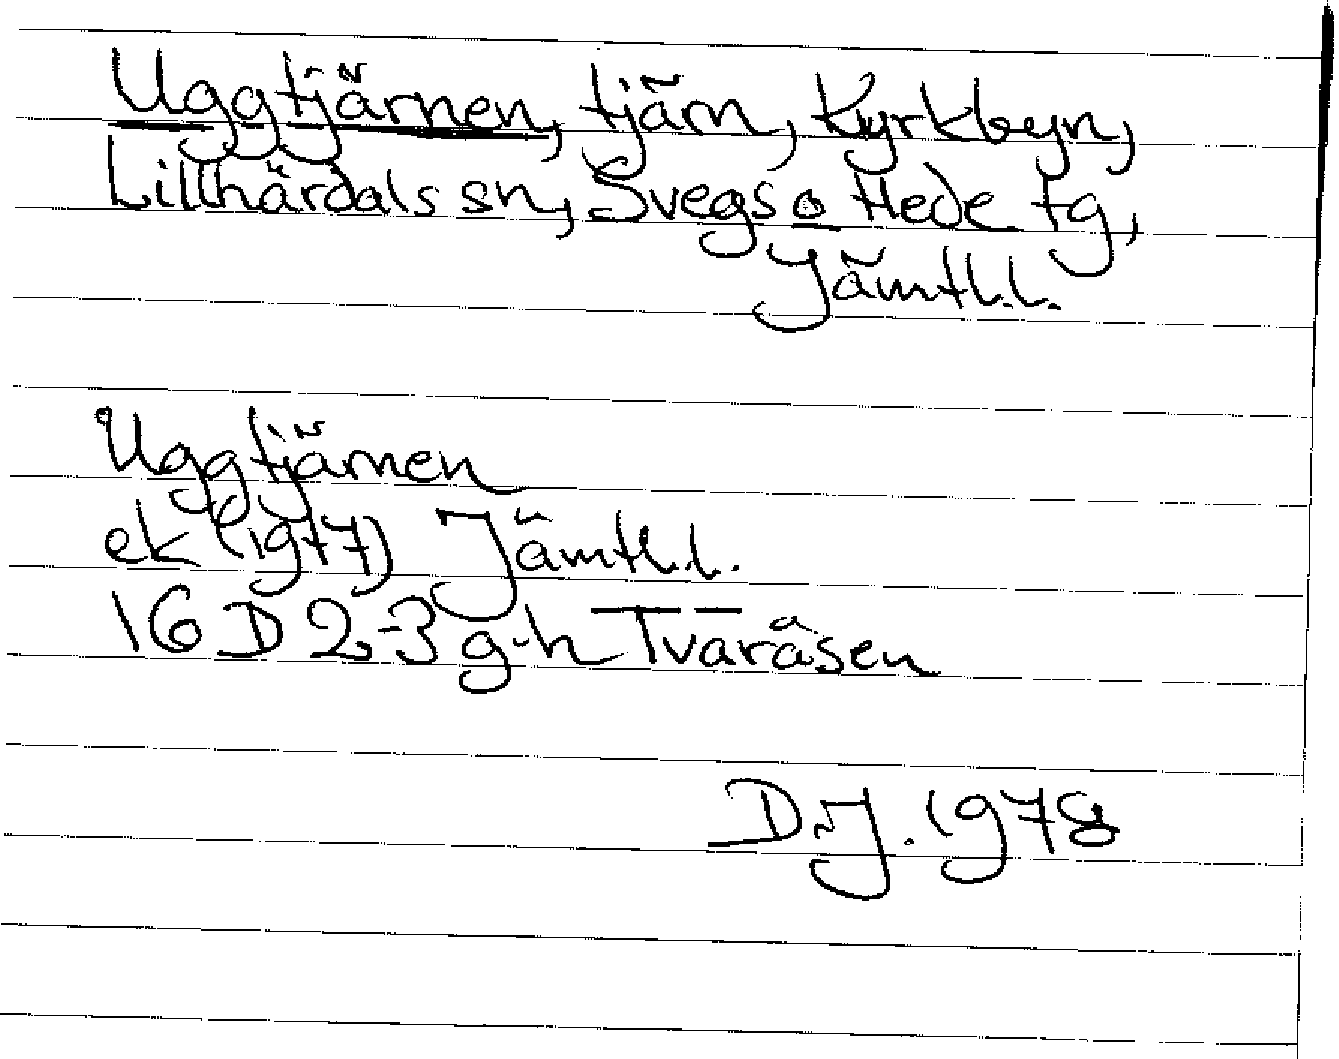 Uggtjärnen, tjärn, Kyrkbyn,
Lillhärdals sn, Svegs o Hede tg,
Jämtl.l.
Uggtjärnen
ek (1977) Jämtl.l.
16 D 2-3 g-h Tvaråsen
D.J. 1978